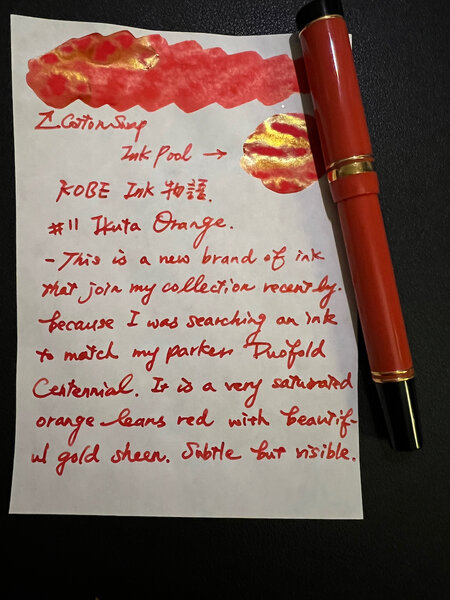 ↑ Cotton Swap
Ink Pool →
KOBE Ink 物語.
#11 Ikuta Orange.
- This is a new brand of ink
that join my collection recently.
because I was searching an ink
to match my parker Duofold
Centennial. It is a very saturated
orange leans red with beautif-
ul gold sheen. Subtle but visible.